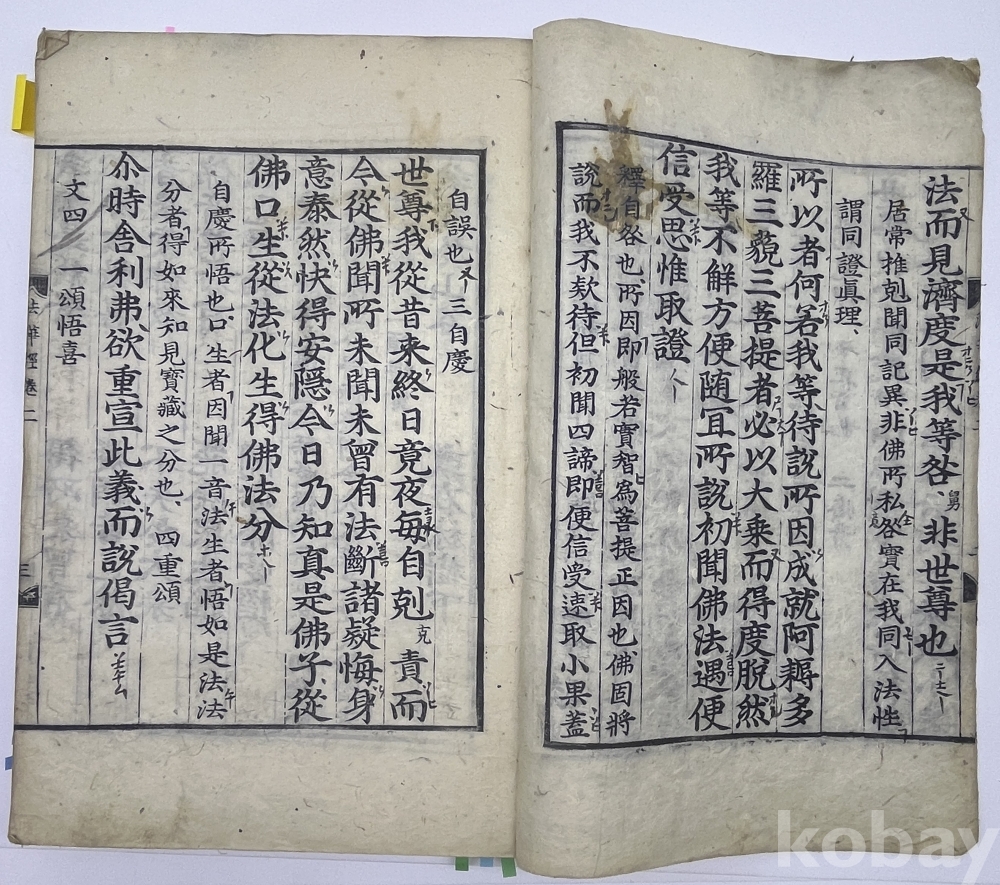 法而見濟度是我等咎、非世尊也
居常推剋聞同記異非佛所私咎實在我同入法性
謂同證眞理、
所以者何若我等待說所因成就阿耨多
羅三藐三菩提者必以大乘而得度脫然
我等不解方便随宜所說初聞佛法遇便
信受思惟取證
釋自咎也所因即般若實智爲菩提正因也佛固將
說而我不欵待但初聞四諦即便信受速取小果蓋
自誤也 三自慶
世尊我從昔来終日竟夜每自剋責而
今從佛聞所未聞未曾有法斷諸疑悔身
意泰然快得安隱今日乃知真是佛子從
佛口生從法化生得佛法分
自慶所悟也口生者因聞一音法生者悟如是法法
分者得如來知見寶藏之分也、四重頌
尒時舍利弗欲重宣此義而說偈言
文四 一頌悟喜
法華經卷二 三
kobay